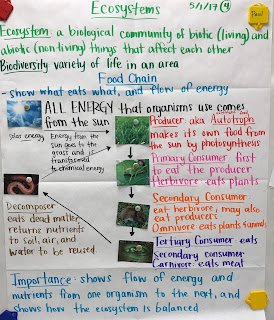 Ecosystems
5/1/17 4
Ecosystem: a biological community of biotic (living) and
abiotic (non living) things that affect each other
Biodiversity: variety of life in an area
Food Chain
- show what eats what, and flow of energy
ALL ENERGY that organisms use comes
from the sun
Solar energy
Energy from the
sun goes to the
grass and is
transferred
to chemical energy
Producer: aka Autotroph
makes its own food from
the sun by photosynthesis
Primary Consumer first
to eat the producer
Herbivore eats plants
Secondary Consumer
eat herbivore, may also
eat producers
Omnivore eats plants &
Tertiary Consumer eats
Secondary consumer
Carnivore eats meat
Decomposer
eats dead matter
returns nutrients
to soil, air, and
water to be reused.
Importance: shows flow of energy and
nutrients from one organism to the next, and
shows how the ecosystem is balanced